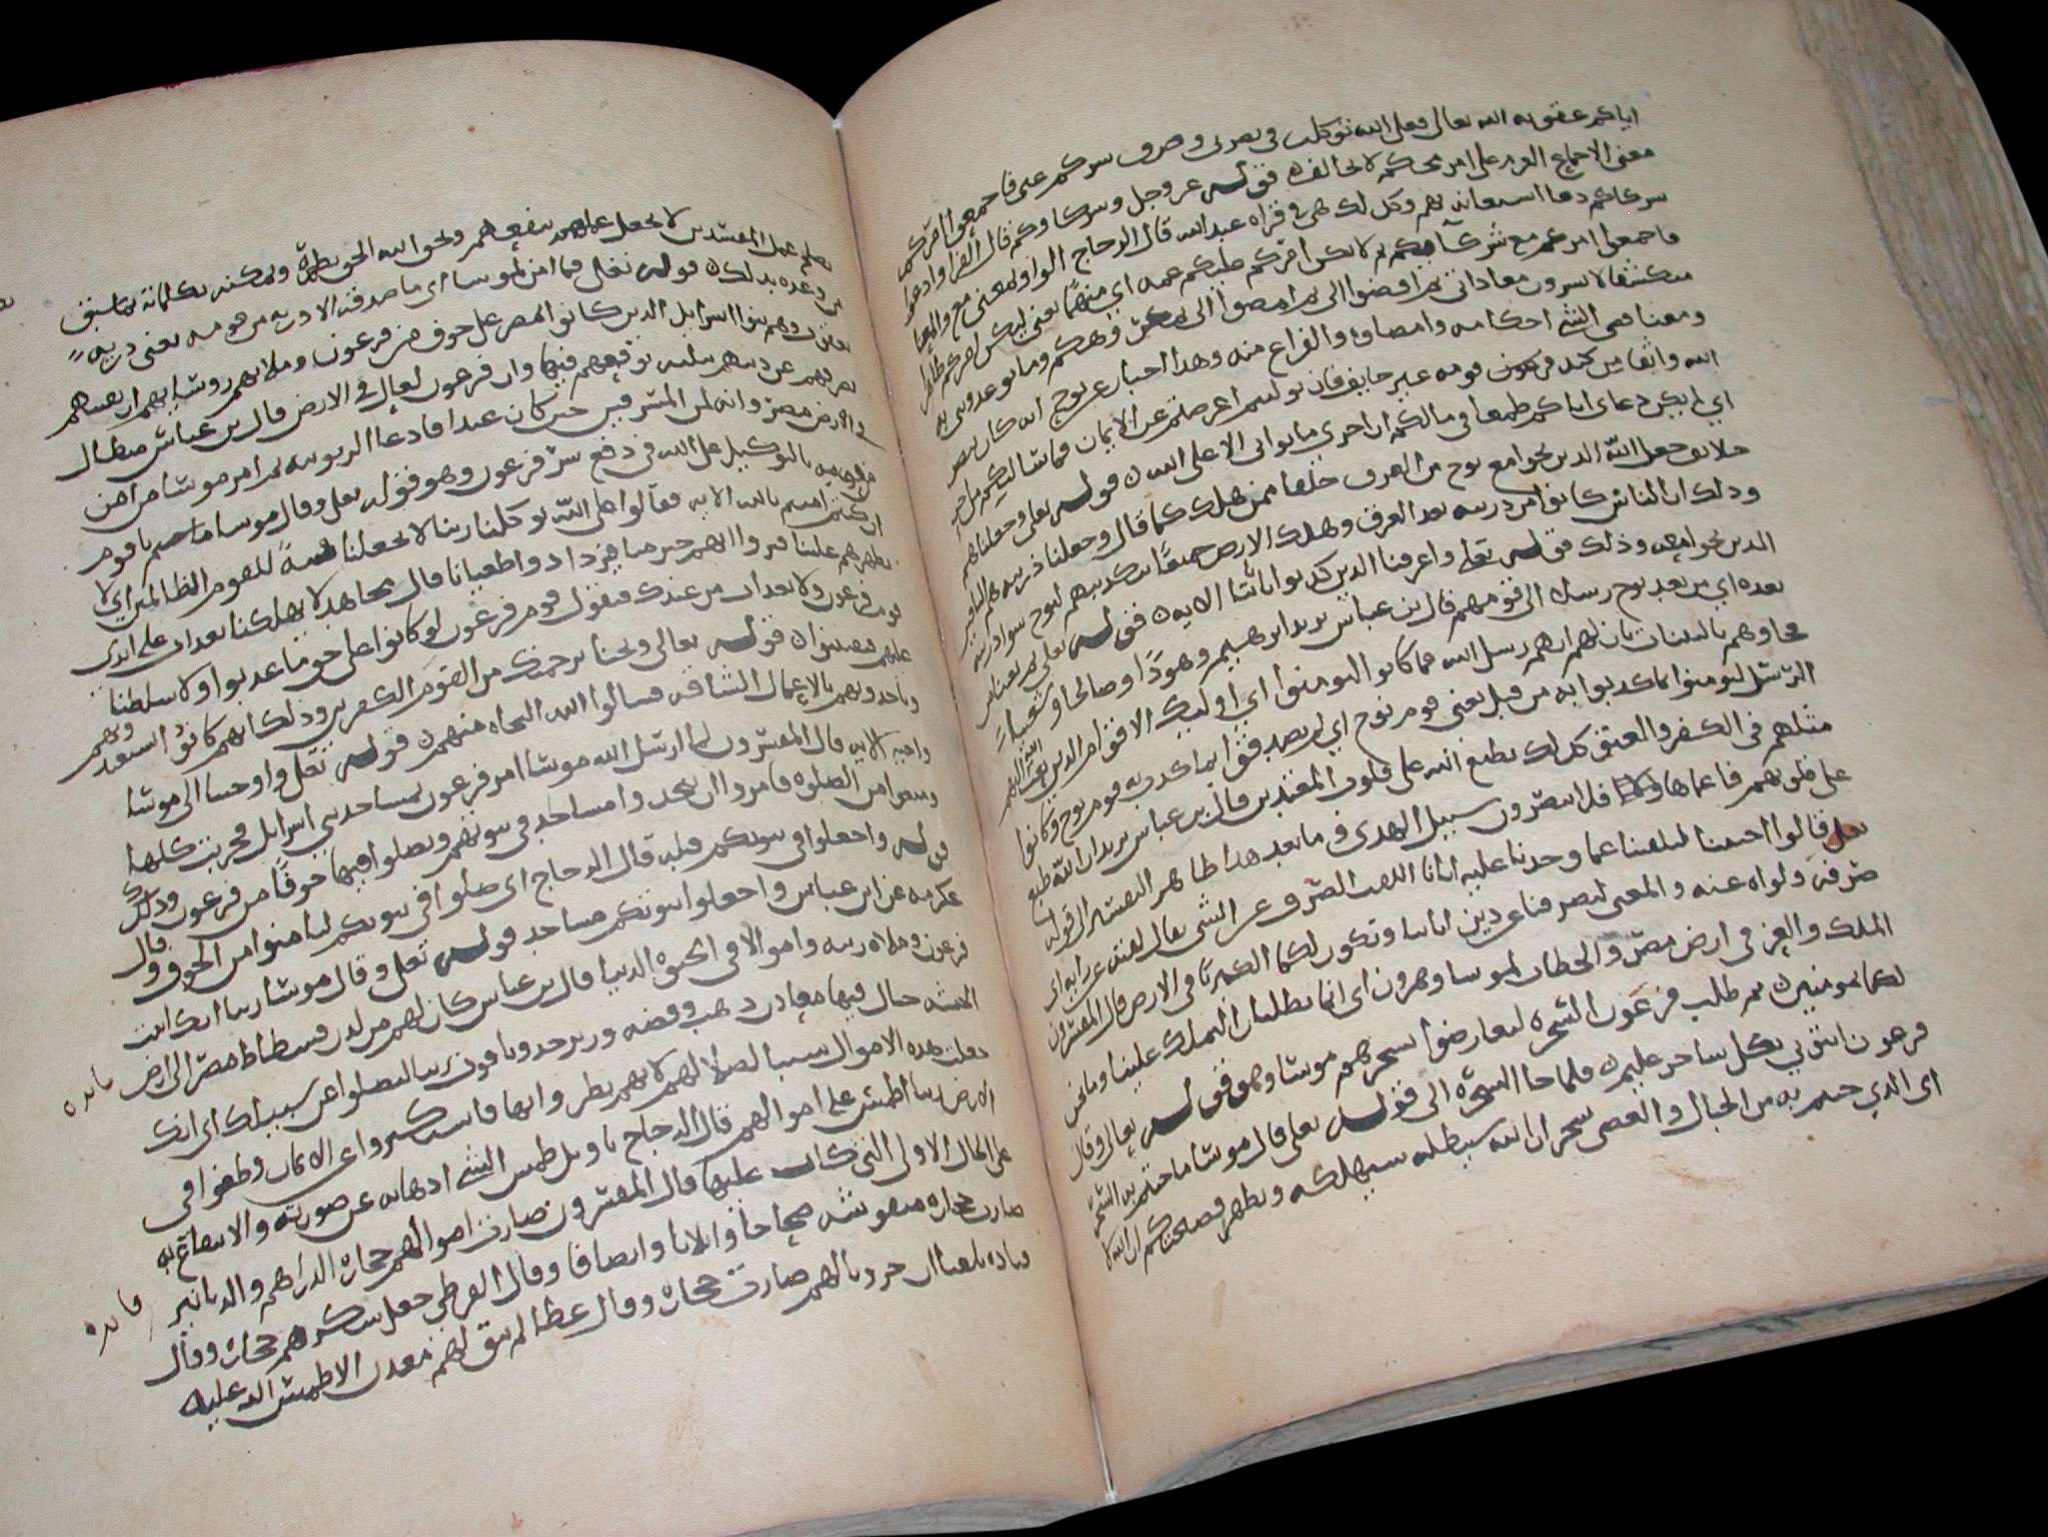 اياكم عقوبه الله تعالى فعلى الله توكلت في نصرتي وصرف شركم عني فاجمعوا امركم
معنى الاجماع العزم على امر محكمه لا تخالف ه قوله عز وجل وشركاوكم قال الفرا وادعوا
شركاكم دعا استعانه بهم وكذلك هي في قراه عبد الله قال الزجاج الواو بمعنى مع والمعنى
فاجمعوا امركم مع شركايكم ثم لا يكن امركم عليكم غمه اي مبهما يعني ليكن امركم ظاهرا
منكشفا لا تسرون معاداتي ثم اقضوا الي ثم امضوا الي بمكروهكم وما توعدوني به
ومعنا قضى الشي احكامه وامضاوه والفراغ منه وهذا اخبار عن نوح انه كان بنصر
الله واثقا من كيد قومه غير خايف فان توليتم اعرضتم عن الايمان فما سالتكم من اجر
اي لم يكن دعاي اياكم طمعا في مالكم ان اجري ما ثوابي الا على الله ه قوله تعالى وجعلناهم
خلايف جعل الله الذين نجوا مع نوح من الغرق خلفا ممن هلك كما قال وجعلنا ذريته هم الباقين
وذلك ان الناس كانوا من ذريته بعد الغرق وهلك اهل الارض جميعا بتكذيبهم لنوح سوا ذريته
الذين نجوا معه وذلك قوله تعالى واغرقنا الذين كذبوا باياتنا الايه ه قوله تعالى ثم بعثنا من
بعده اي من بعد نوح رسلا الى قومهم قال بن عباس يريد ابرهيم وهودا وصالحا وشعيبا
فجاوهم بالبينات بان لهم انهم رسل الله فما كانوا ليومنوا اي اوليك الاقوام الذين بعث الله اليهم
الرسل ليومنوا بما كذبوا به من قبل يعني قوم نوح اي لم يصدقوا بما كذب به قوم نوح وكانوا
مثلهم في الكفر والعتو كذلك نطبع الله على قلوب المعتدين قال بن عباس يريد ان الله طبع
على قلوبهم فاعماها فلا تبصرون سبيل الهدى وما بعد هذا ظاهر التفسير الى قوله
تعالى قالوا اجيتنا لتلفتنا عما وجدنا عليه اباانا اللفت الصرف عن الشي يقال لفته عن رايه اي
صرفه ولواه عنه والمعنى لتصرفنا عن دين اباينا وتكون لكما الكبريا في الارض قال المفسرون
الملك والعز في ارض مصر والخطاب لموسا وهرون اي انما تطلبان الملك علينا وما نحن
لكما بمومنين ه ثم طلب فرعون السحره ليعارضوا بسحرهم موسا وهو قوله تعالى وقال
فرعون ايتوني بكل ساحر عليم ه فلما جا السحره الى قوله تعالى قال موسا ما جيتم به السحر
اي الذي جيتم به من الحبال والعصي سحر ان الله سيبطله سيهلكه ويظهر فضيحتكم ان الله لا
يصلح عمل المفسدين لا يجعل عملهم ينفعهم ويحق الله الحق يظهره ويمكنه بكلماته بما سبق
من وعده بذلك ه قوله تعالى فما امن لموسا اي ما صدقه الا ذريه من قومه يعني ذريه
يعقوب وهم بنوا اسرايل الذين كانوا بمصر على خوف من فرعون وملايهم وروسايهم ان يفتنهم
يصرفهم عن دينهم ببليه توقعهم فيها وان فرعون لعال في الارض قال بن عباس متطاول
في الارض مصر وانه لمن المسرفين حين كان عبدا فادعا الربوبيه ثم امر موسا من امن
من قومه بالتوكيل على الله في دفع شر فرعون وهو قوله تعالى وقال موسا يا قوم
ان كنتم امنتم بالله الايه فقالوا على الله توكلنا ربنا لا تجعلنا فتنة للقوم الظالمين اي لا
تظهرهم علينا فيروا انهم خير منا فيزدادوا طغيانا قال مجاهد لا تهلكنا بعذاب على ايدي
قوم فرعون ولا بعذاب من عندك فيقول قوم فرعون لو كانوا على حق ما عذبوا ولا سلطنا
عليهم فيفتنوا ه قوله تعالى ونجنا برحمتك من القوم الكفرين وذلك انهم كانوا استعبدوهم
وياخذونهم بالاعمال الشاقه فسالوا الله النجاه منهم ه قوله تعالى واوحينا الى موسا
واخيه الايه قال المفسرون لما ارسل الله موسا امر فرعون بمساجد بني اسرايل فخربت كلها
ومنعوا من الصلوه فامروا ان يتخذوا مساجد في بيوتهم ويصلوا فيها خوفا من فرعون وذلك
قوله واجعلوا بيوتكم قبله قال الزجاج اي صلوا في بيوتكم لتامنوا من الخوف وقال
عكرمه عن ابن عباس واجعلوا بيوتكم مساجد قوله تعالى وقال موسا ربنا انك اتيت
فرعون وملاه زينه واموالا في الحيوه الدنيا قال بن عباس كان لهم من لدن فسطاط مصر الى ارض
الحبشه جبال فيها معادن ذهب وفضه وزبرجد وياقوت ربنا ليضلوا عن سبيلك اي انك
جعلت هذه الاموال سببا لضلالهم لانهم بطروا بها فاستكبروا عن الايمان وطغوا في
الارض ربنا اطمس على اموالهم قال الزجاج تاويل طمس الشي اذهابه عن صورته والانتفاع به
على الحال الاولى التي كان عليها قال المفسرون صارت اموالهم حجاره الدراهم والدنانير
صارت حجاره منقوشه صحاحا واثلاثا وانصافا وقال القرظي جعل سكرهم حجاره وقال
قتاده بلغنا ان حروثا لهم صارت حجاره وقال عطا لم يبق لهم معدن الا طمس الله عليه
فايده
فايده